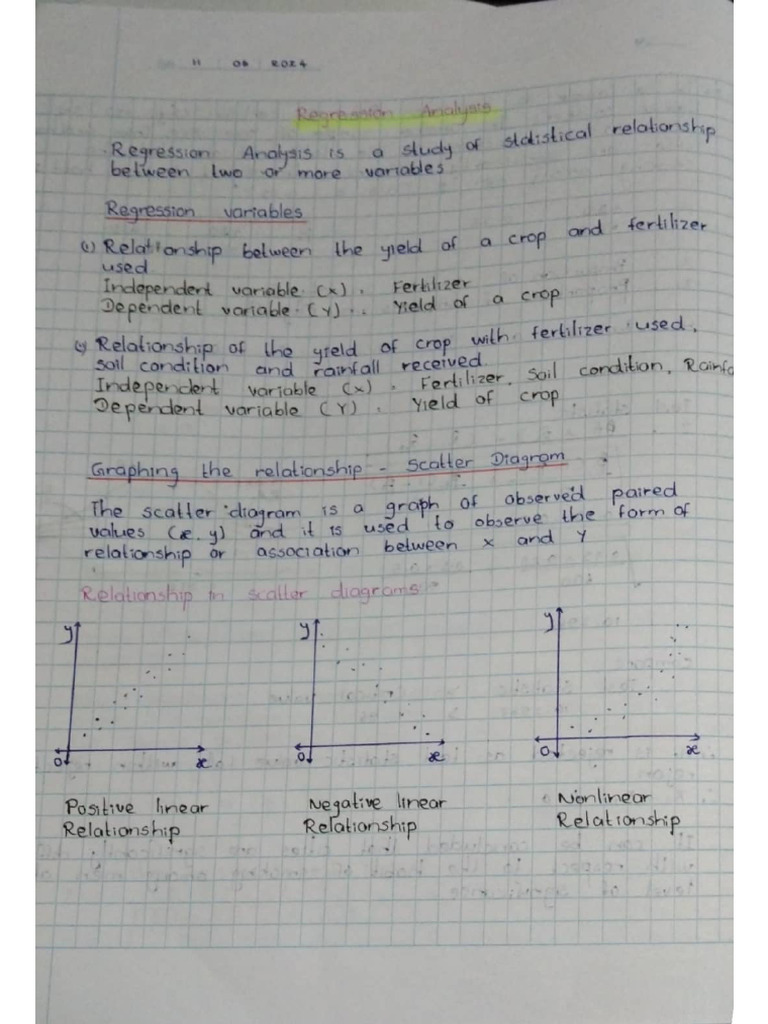 11 06 2024
Regression Analysis
Regression Analysis is a study of statistical relationship
between two or more variables
Regression variables
(1) Relationship between the yield of a crop and fertilizer
used
Independent variable (x). Fertilizer
Dependent variable (Y). Yield of a crop
Relationship of the yield of crop with fertilizer used,
soil condition and rainfall received.
Independent variable (x). Fertilizer, Soil condition, Rainfa
Dependent variable (Y). Yield of crop.
Graphing the relationship - Scatter Diagram
The scatter diagram is a graph of observed paired
values (x, y) and it is used to observe the form of
relationship or association between x and Y
Relationship in scatter diagrams
y y y
0 x 0 x 0 x
Positive linear Negative linear Nonlinear
Relationship Relationship Relationship